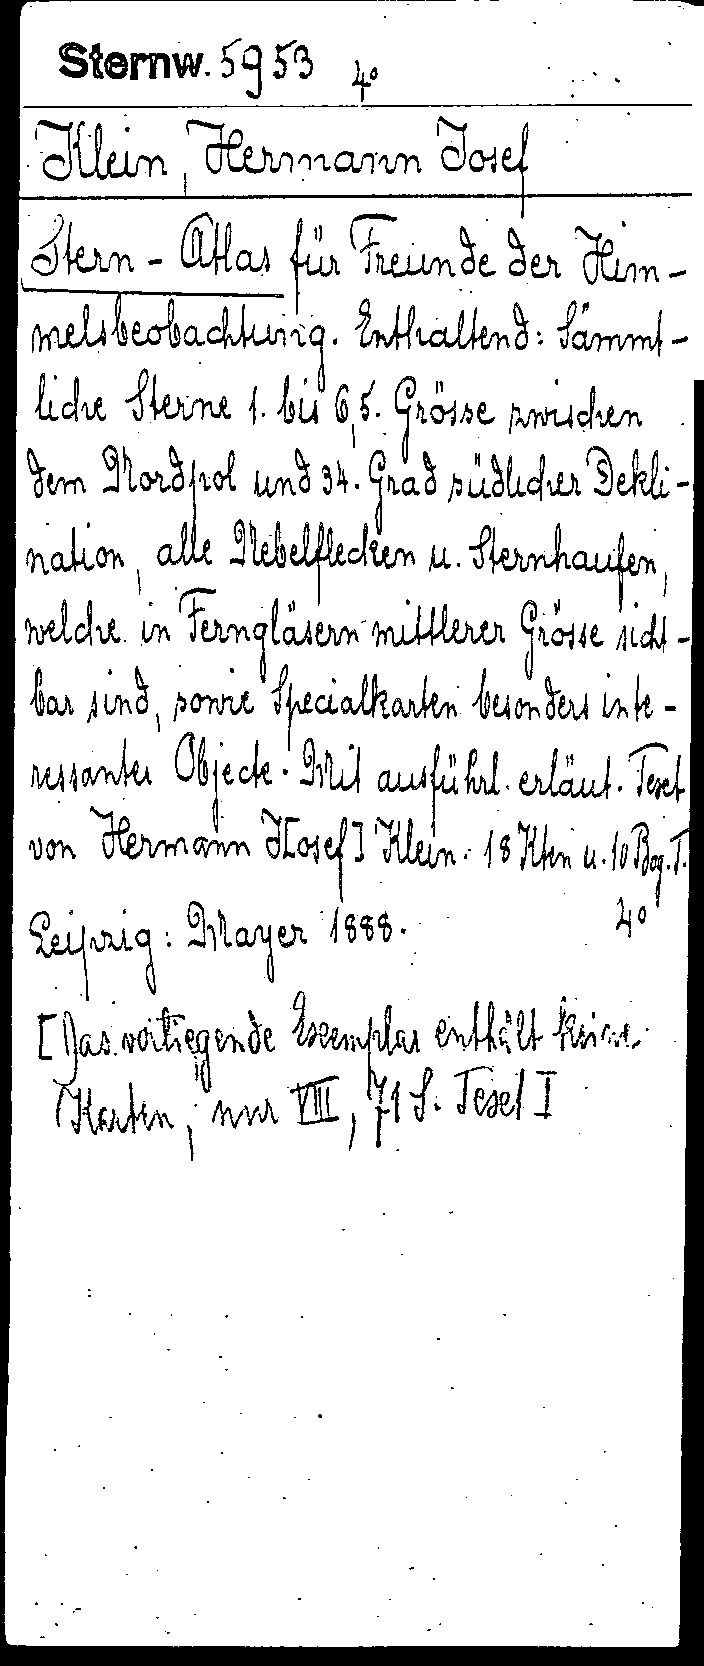 Sternw. 5953 4°
Klein, Hermann Josef
Stern-Atlas für Freunde der Him-
melsbeobachtung. Enthaltend: Sämmt-
liche Sterne 1. bis 6,5. Grösse zwischen
dem Nordpol und 34. Grad südlicher Dekli-
nation, alle Nebelflecken u. Sternhaufen,
welche in Ferngläsern mittlerer Grösse sicht-
bar sind, sowie Specialkarten besonders inte-
ressanter Objecte. Mit ausführl. erläut. Text
von Hermann J[osef] Klein. 18 Ktn u. 10 Bog. T.
Leipzig: Mayer 1888. 4°
[Das vorliegende Exemplar enthält keine
Karten, nur VIII, 71 S. Text]